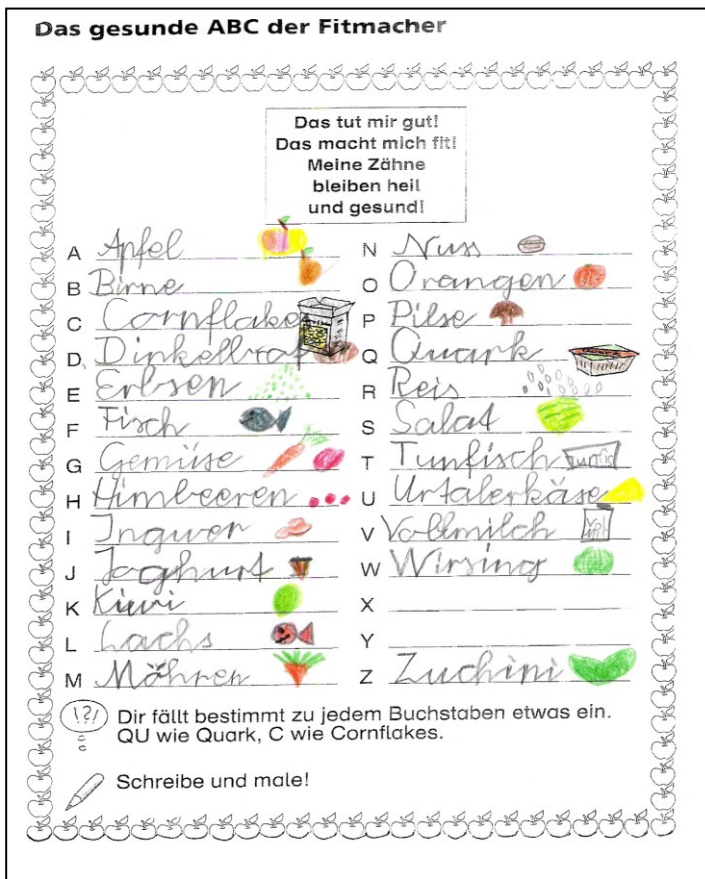 Das gesunde ABC der Fitmacher
Das tut mir gut!
Das macht mich fit!
Meine Zähne
bleiben heil
und gesund!
A Apfel
B Birne
C Cornflakes
D Dinkelbrot
E Erbsen
F Fisch
G Gemüse
H Himbeeren
I Ingwer
J Joghurt
K Kiwi
L Lachs
M Möhren
N Nuss
O Orangen
P Pilse
Q Quark
R Reis
S Salat
T Tunfisch Tunfis
U Urtalerkäse
V Vollmilch
W Wirsing
X
Y
Z Zuchini
!?! Dir fällt bestimmt zu jedem Buchstaben etwas ein.
QU wie Quark, C wie Cornflakes.
Schreibe und male!